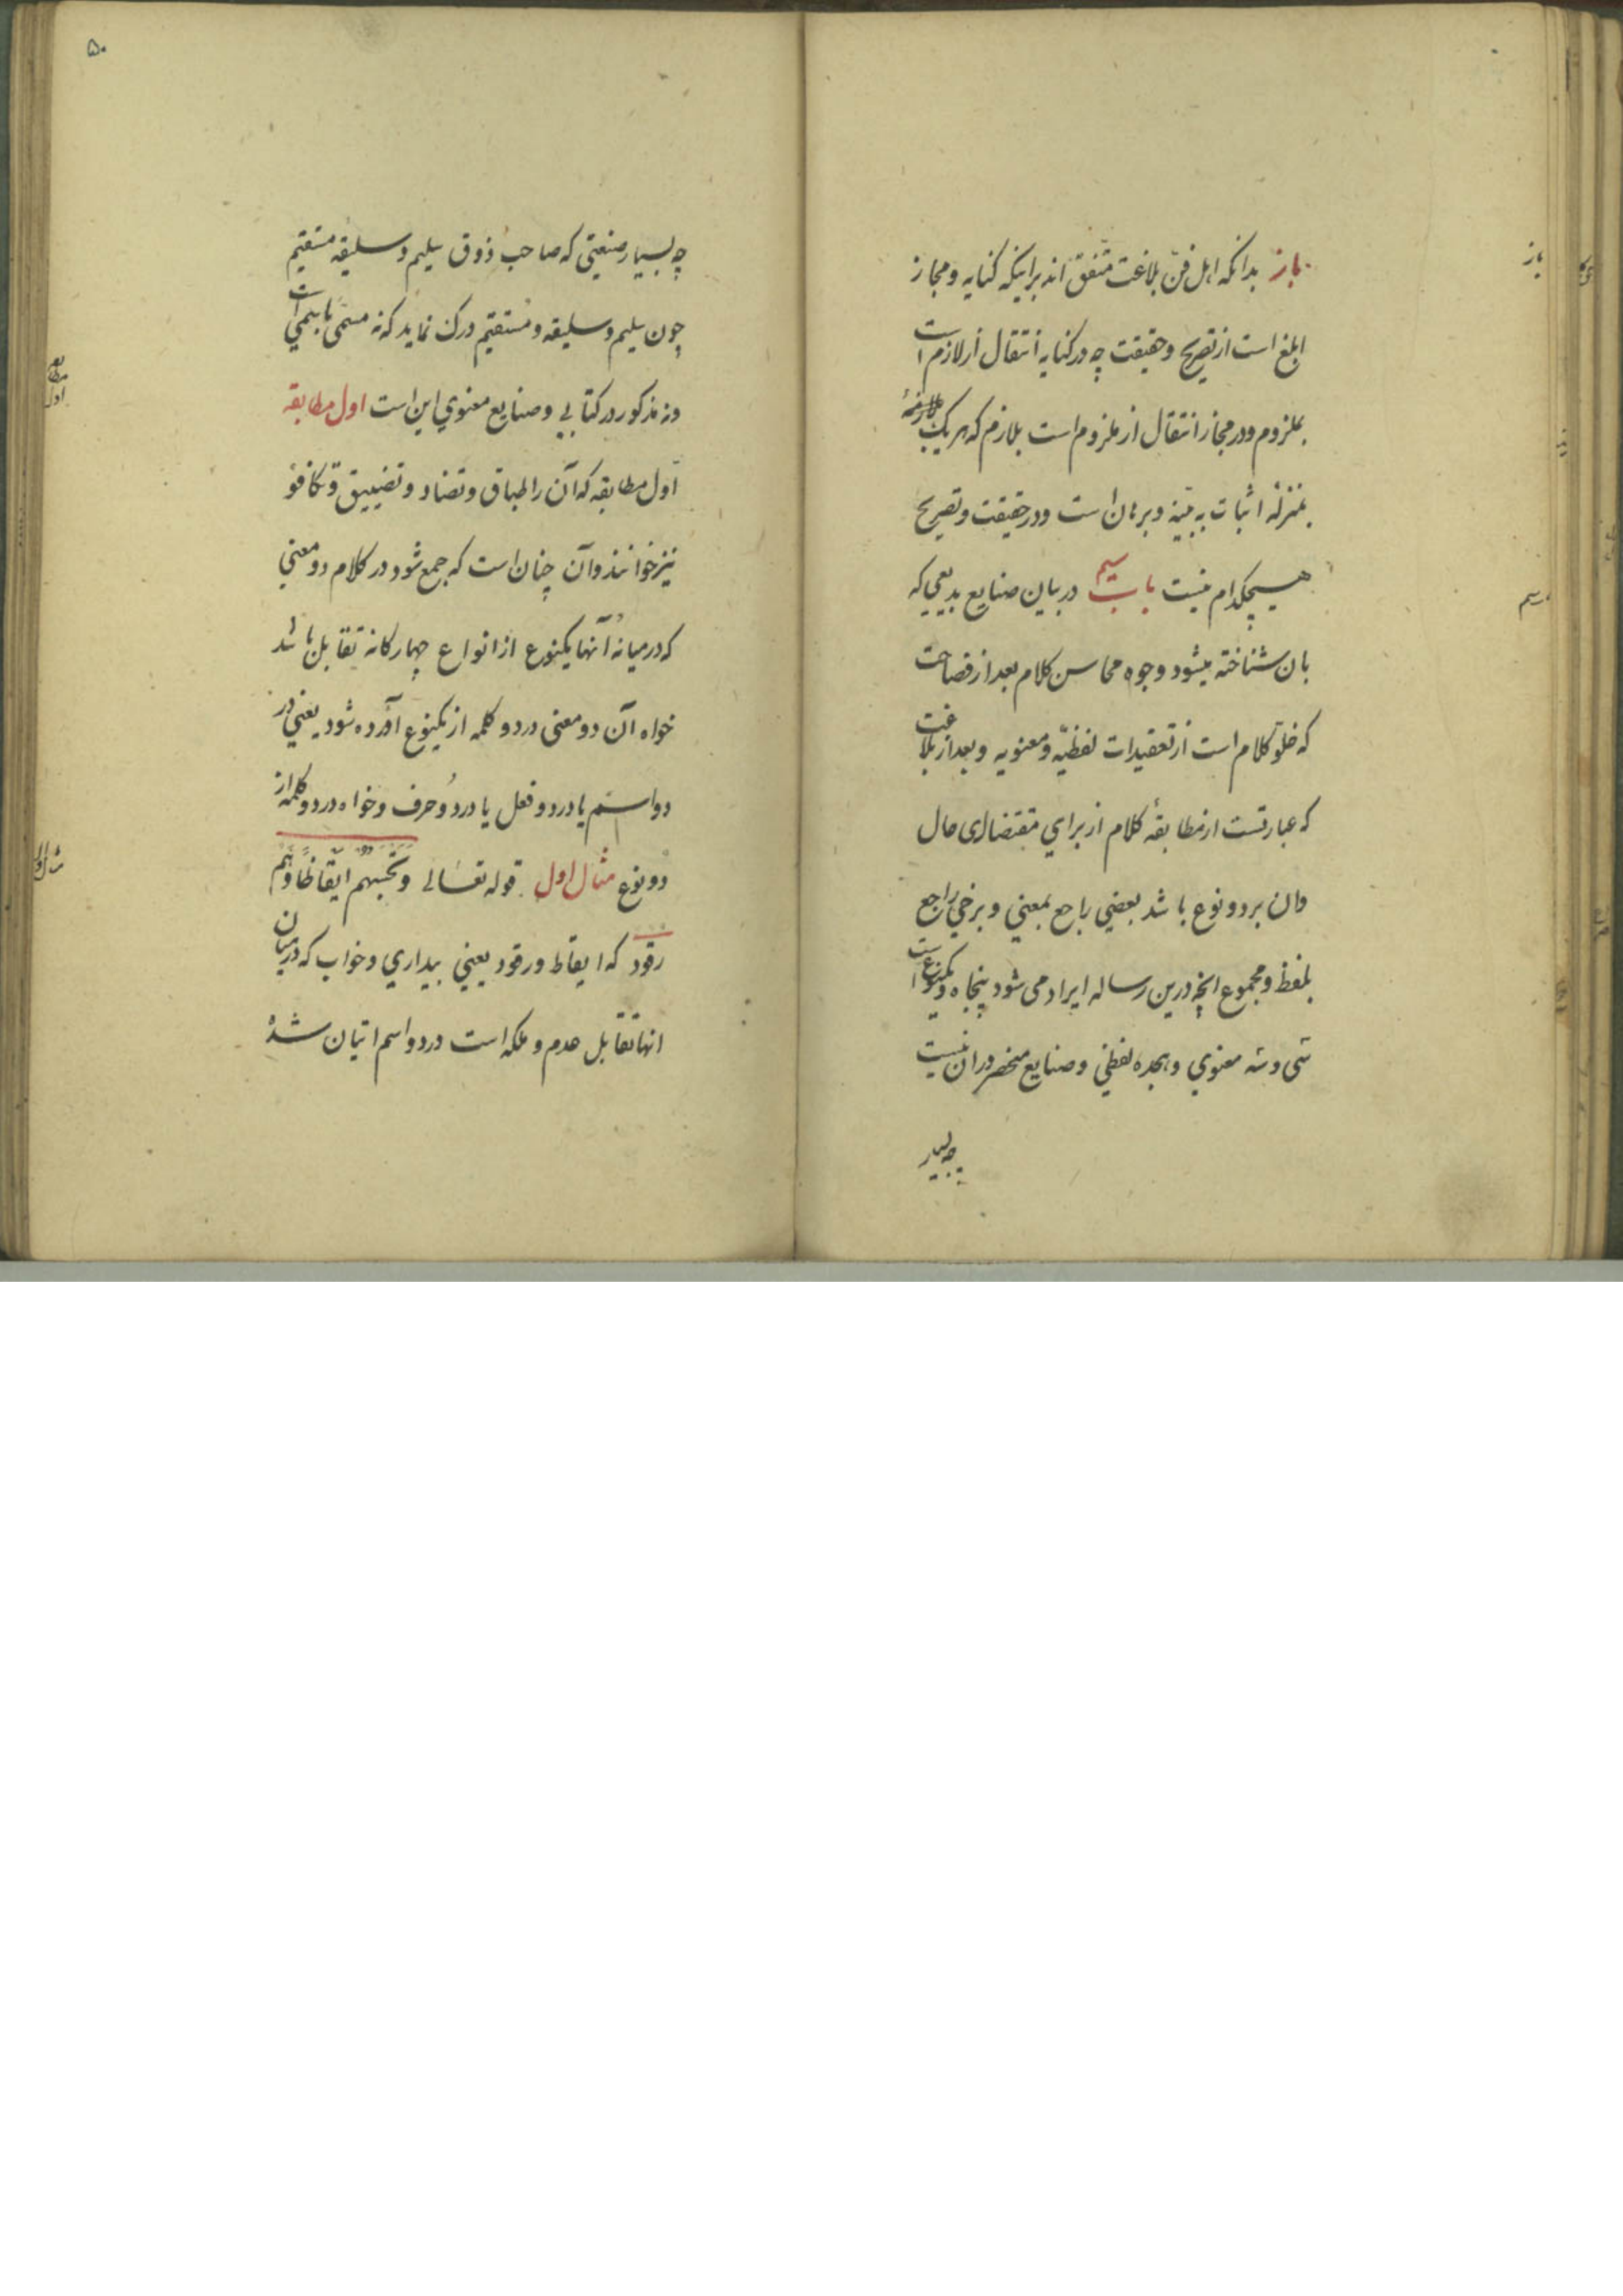 باز بدانکه اهل فنّ بلاغت متّفق اند براینکه کنایه و مجاز
ابلغ است از تصریح و حقیقت چه در کنایه انتقال از لازم است
بملزوم و در مجاز انتقال از ملزوم است بلازم که هر یک
بمنزلهٔ اثبات به بیّنه و برهان است و در حقیقت و تصریح
هیچکدام نیست باب سیم در بیان صنایع بدیعی که
بان شناخته میشود وجوه محاسن کلام بعد از فصاحت
که خلوّ کلام است از تعقیدات لفظیّه و معنویه و بعد از بلاغت
که عبارتست از مطابقهٔ کلام از برای مقتضای حال
وان بر دو نوع باشد بعضي راجع بمعني و برخي راجع
بلفظ و مجموع انچه درین رساله ایراد می شود پنجاه و یکنوع است
سی و سه معنوي و هجده لفظي و صنایع منحصر دران نیست
چه بسیار
باز
۵۰
چه بسیار صنعتی که صاحب ذوق سلیم و سلیقه مستقیم
چون سلیم و سلیقه و مستقیم درک نماید که نه مسمّی باسمي است
و نه مذکور در کتابی و صنایع معنوي این است اول مطابقه
اوّل مطابقه که آن را طباق و تضاد و تضییق و تکافؤ
نیز خوانند وآن چنان است که جمع شود در کلام دو معني
که در میانهٔ آنها یکنوع از انواع چهارکانه تقابل باشد
خواه آن دو معنی در دو کلمه از یکنوع آورده شود یعني در
دو اسم یا در دو فعل یا در دو حرف و خواه در دو کلمه از
دو نوع مثال اول قوله تعالی و تحسبهم ایقاظاً و هم
رقود که ایقاظ و رقود یعني بیداري و خواب که در میان
انها تقابل عدم و ملکه است در دو اسم اتیان شده